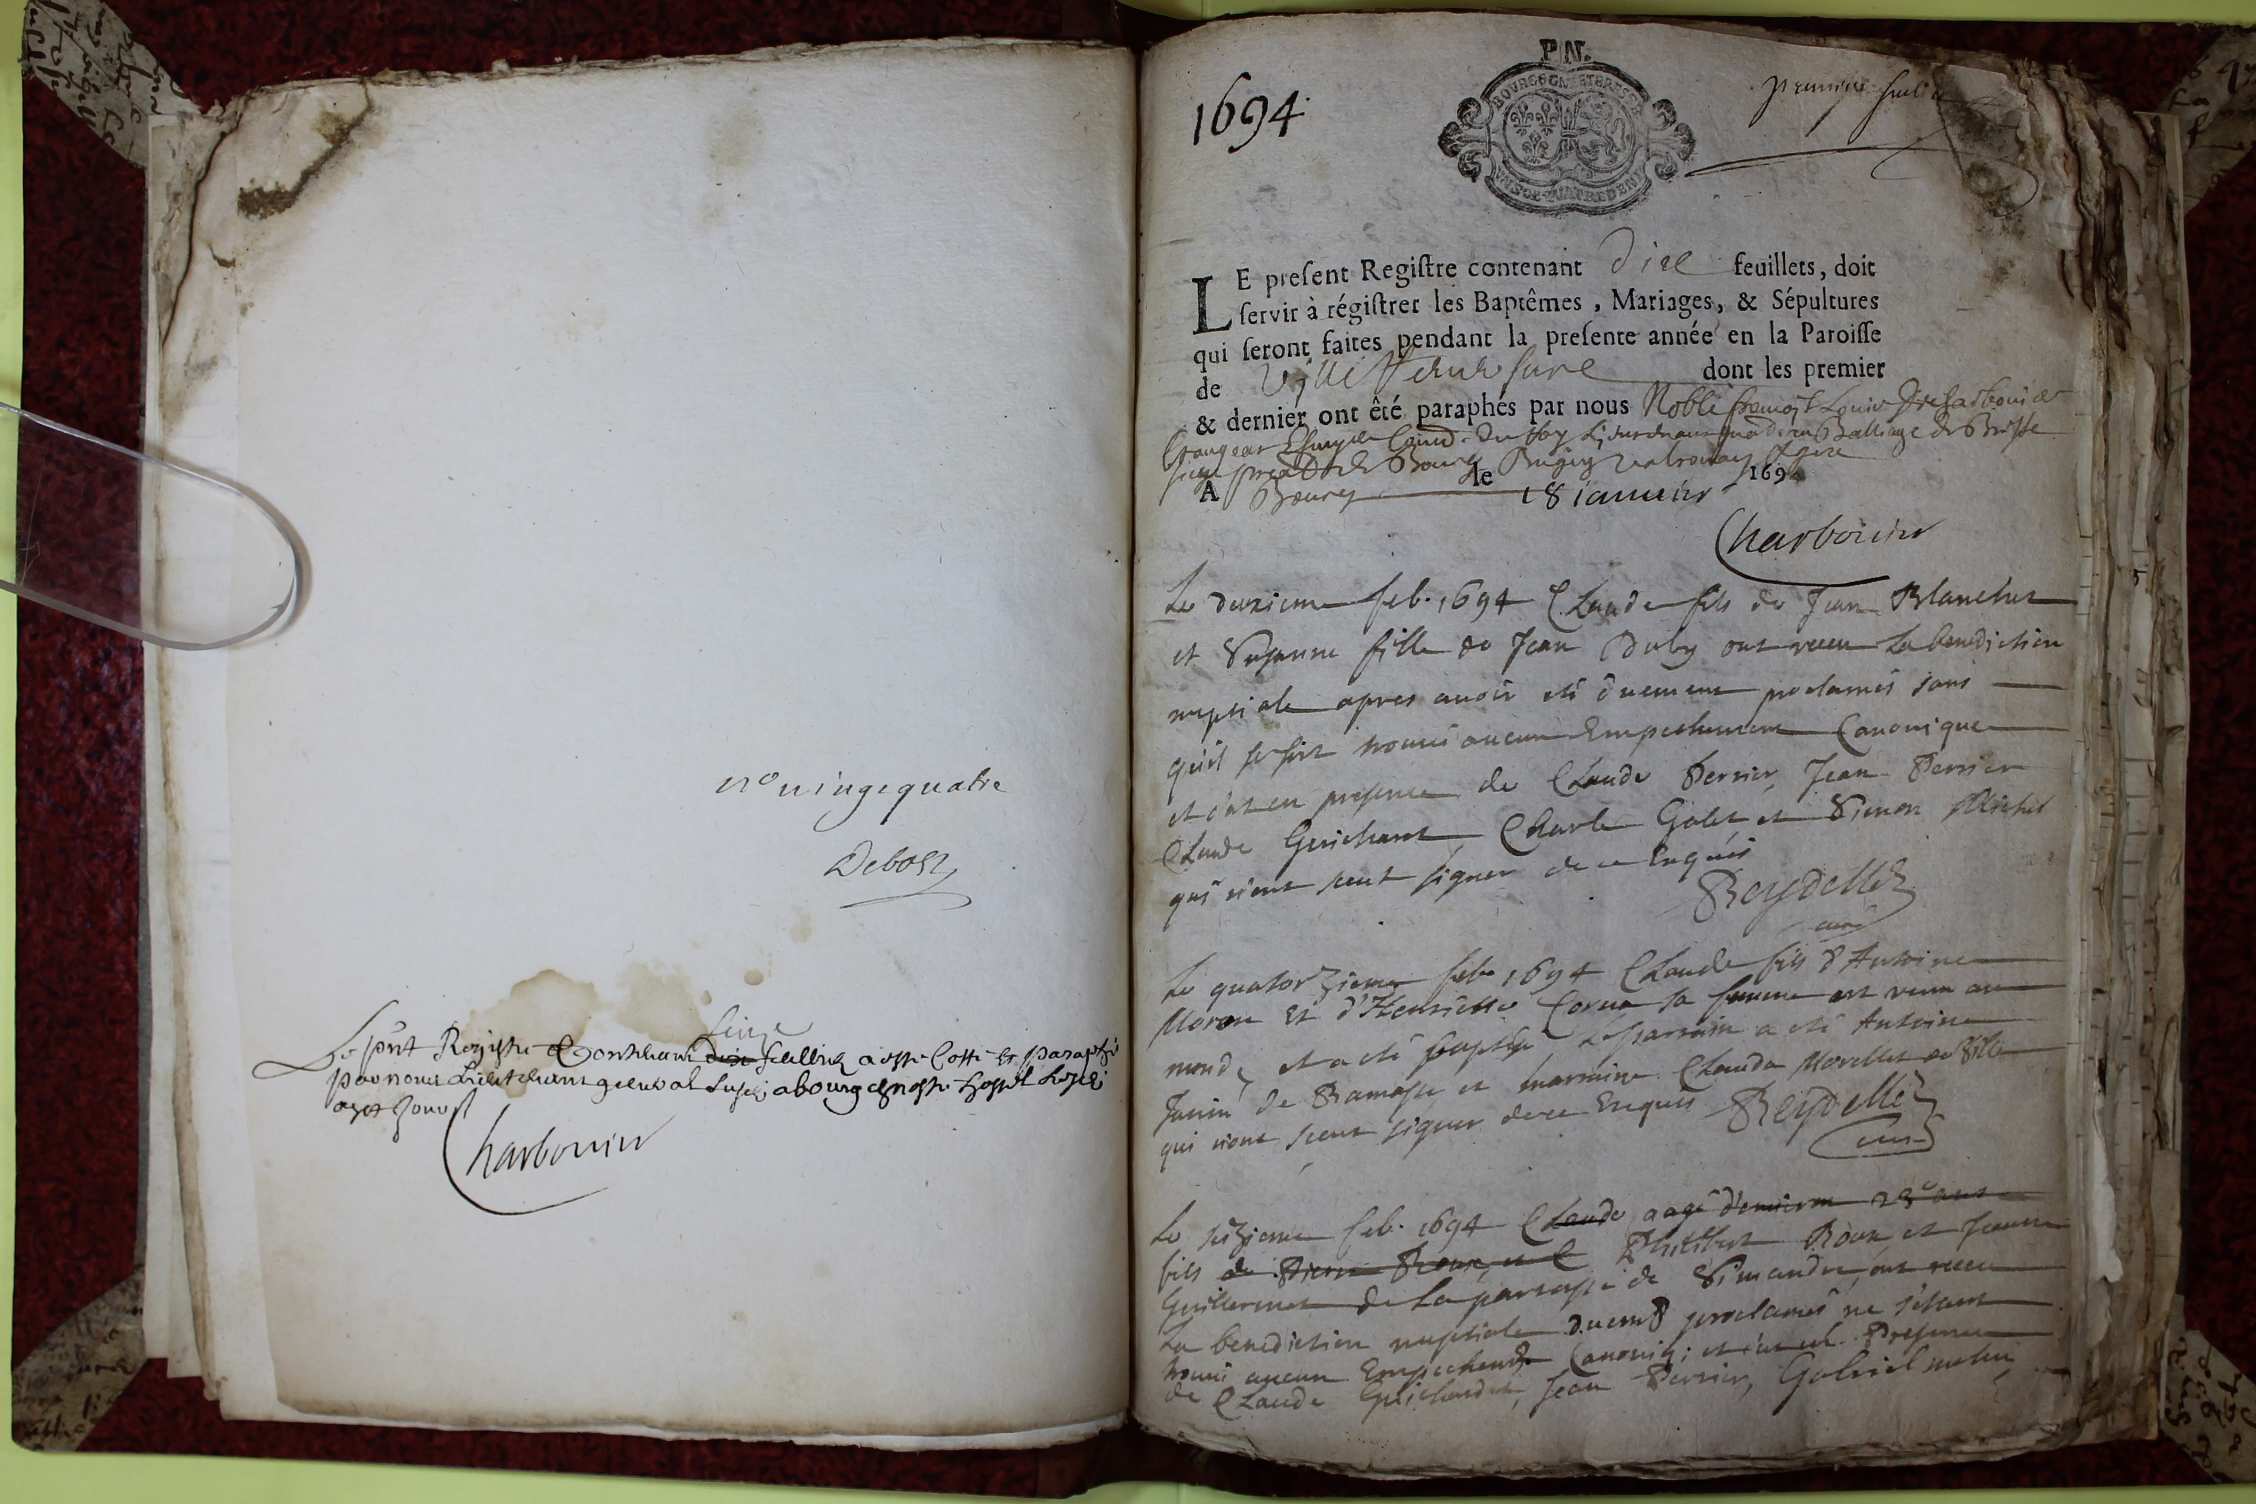 n.o vingt quatre
Debost
seize
Le pnt Registre Contenant dix feuillets a esté Cotté et paraphé
par nous Lieutenant general a bourg en nostre hostel
Charbonnier
1694
P.N.
BOURGOGNE ET BRESSE
premier feuillet
LE preſent Regiſtre contenant dixe feuillets, doit
ſervir à régiſtrer les Baptêmes, Mariages, & Sépultures
qui ſeront faites pendant la preſente année en la Paroiſſe
de Villettereversure dont les premier
& dernier ont êté paraphés par nous Noble françois Louis Charbonier
Crangeac Escuyer Lieutenant Balliage de Bresse
siege Bourg Bugey valromey et Gex
A Bourg le 18 ianuier 1694
Charbonier
Le deuxieme feb. 1694 Claude fils de Jean Blanchet
et Suzanne fille de Jean Duby ont receu La benediction
nuptiale apres auoir eté duement proclamés sans
qu'il se soit trouué aucun Empeschement Canonique
et c'at eu presence de Claude Perrier, Jean Perrier
Claude Guichard, Charle Golet et Simon Michel
qui n'ont sceut signer de ce Enquis
Reydellet
curé
Le quatorzieme feb. 1694 Claude fils d'Antoine
Moron Et d'Henriette Cornu sa femme est venu au
monde, et a eté baptisé, Le parrain a eté Antoine
Janin de Ramasse et marraine Clauda Morellet de Ville
qui n'ont sceut signer de ce Enquis Reydellet
curé
Le seizieme feb. 1694 Claude aagé d'enuiron 23 ans
fils de Pierre Roux, et C Philibert Roux et Jeanne
Guillermet de La parroisse de Simandre, ont receu
La benediction nuptiale duemt proclamés ne s'etant
trouué aucun Empechemt Canoniq; et c'at eu Presence
de Claude Guichardet, Jean Perrier, Gabriel